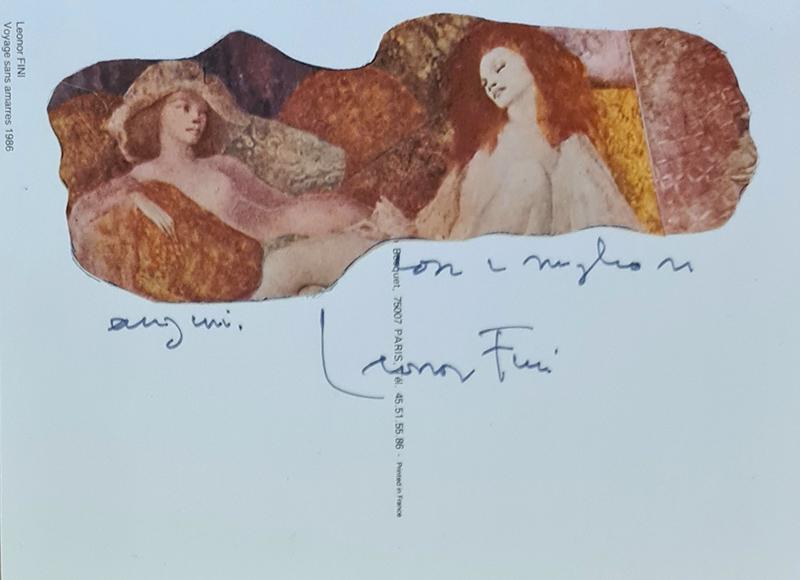 Leonor FINI
Voyage sans amarres 1986
Con i migliori
auguri.
Leonor Fini
Bosquet, 75007 PARIS. Tél. 45.51.55.86 - Printed in France